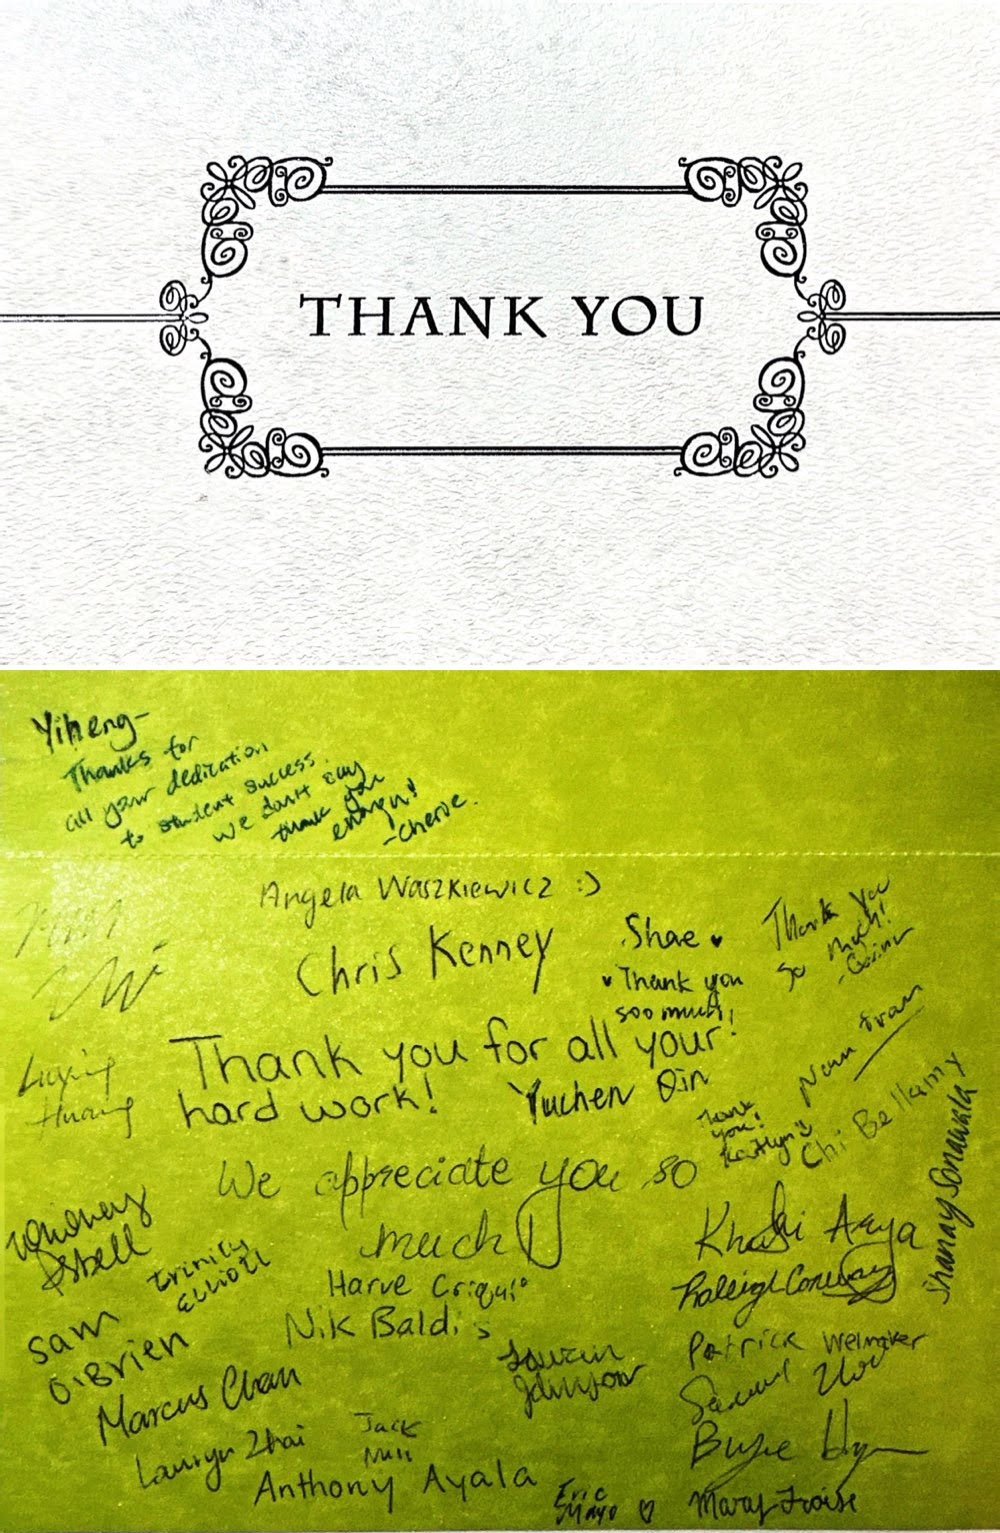 THANK YOU
Yiheng-
Thanks for
all your dedication
to student success.
We don't say
thank you
enough!
-Cherve.
Angela Waszkiewicz :)
Chris Kenney
Shae
Thank you
soo much!
Thank you
so much!
Thank you for all your
hard work!
Yuchen Qin
Nam Tran
Luying
Huang
Thank
you!
Kaitlyn
Chi Bellamy
We appreciate you so
much!
Shanay Sonawala
Asbell
Trinity
Elliott
Khushi Arya
Harve Criqui
Raleigh Conway
Nik Baldis
Sam
O'Brien
Patrick Welmaker
Lauren
Johnson
Marcus Chan
Samuel
Lauryn Zhai
Jack
Anthony Ayala
Eric
Mayo
Mary Froise